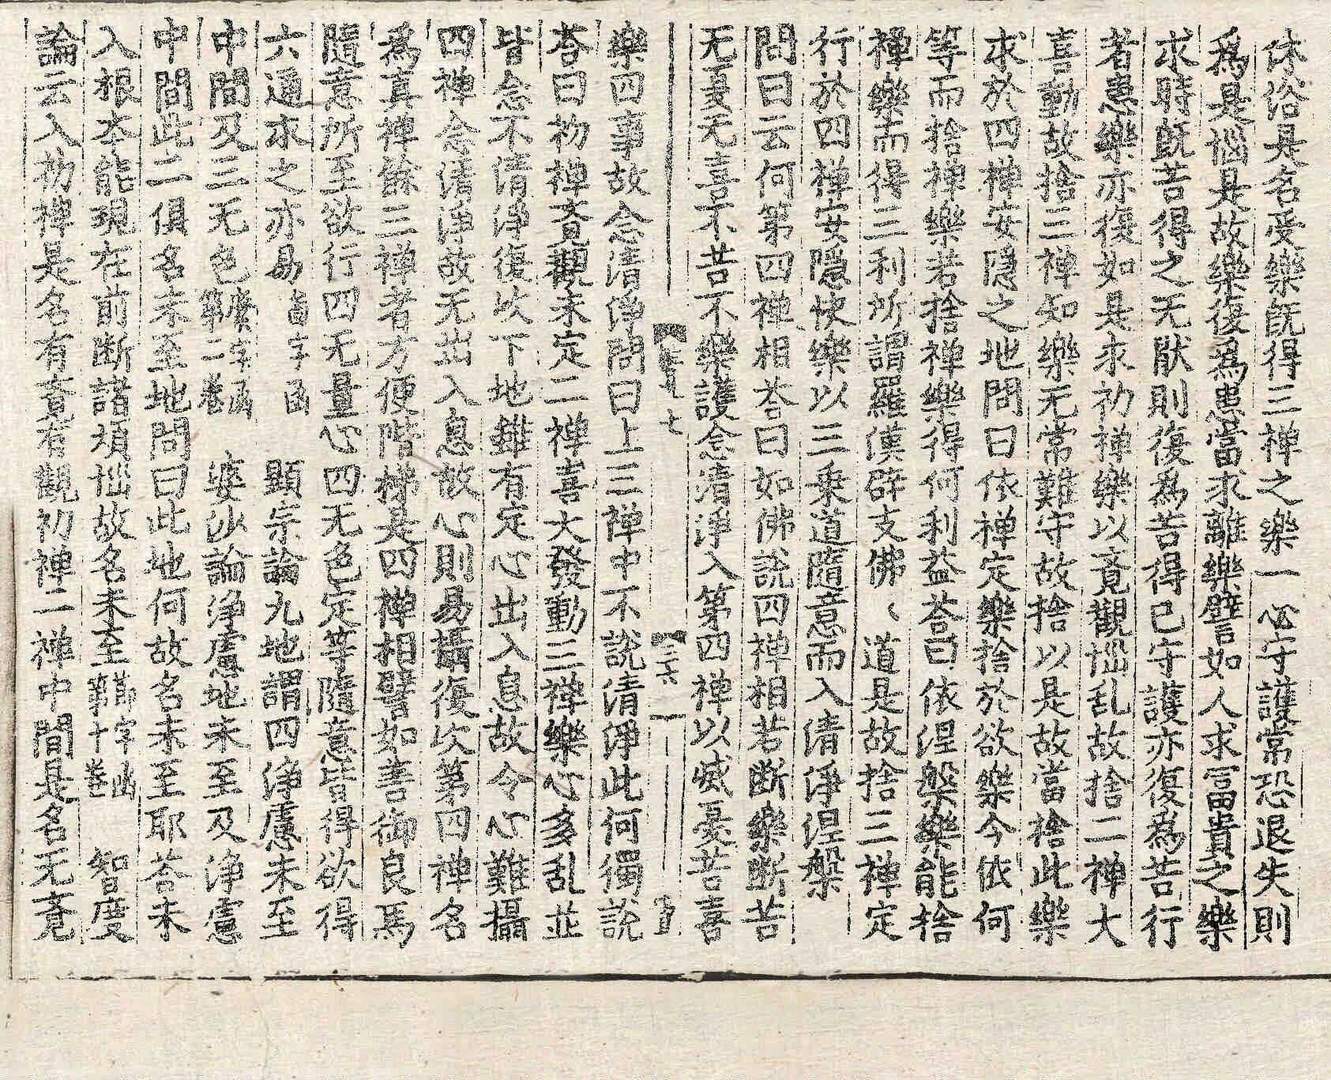 休浴是名受樂旣得三禅之樂一心守護常恐退失則
爲是惱是故樂復爲患當求離樂譬如人求冨貴之樂
求時旣苦得之无猒則復為苦得已守護亦復爲苦行
者患樂亦復如是求初禅樂以覔觀惱乱故捨二禅大
喜動故捨三禅知樂无常難守故捨以是故當捨此樂
求於四禅安隱之地問曰依禅定樂捨於欲樂今依何
等而捨禅樂若捨禅樂得何利益荅曰依涅槃樂能捨
禅樂而得三利所謂羅漢辟支佛、道是故捨三禅定
行於四禅安隱快樂以三乗道隨意而入清淨涅槃
問曰云何第四禅相荅曰如佛說四禅相若断樂断苦
无憂无喜不苦不樂護念清淨入第四禅以烕憂苦喜
三六
樂四事故念清淨問曰上三禅中不說清淨此何獨說
荅曰初禅覔觀未定二禅喜大發動三禅樂心多乱並
皆念不清淨復次下地雖有定心出入息故令心難攝
四禅念清淨故无出入息故心則易攝復次第四禅名
為真禅餘三禅者方便階梯是四禅相譬如善御良馬
隨意所至欲行四无量心四无色定等隨意皆得欲得
六通求之亦易啚字函 顯宗論九地謂四淨慮未至
中間及三无色 字函第二卷 婆沙論淨慮地未至及淨慮
中間此二俱名未至地問曰此地何故名未至耶荅未
入根本能現在前断諸煩惱故名未至 字函第十卷 智度
論云入初禅是名有覔有觀初禅二禅中間是名无覔